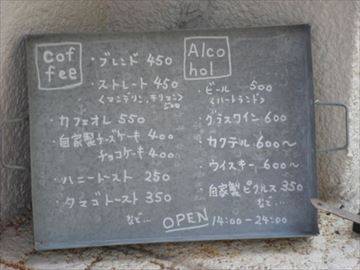 cof
fee
・ブレンド 450
・ストレート 450
〈マンデリン、キリマン〉
・カフェオレ 550
・自家製チーズケーキ 400
チョコケーキ 400
・ハニートースト 250
・タマゴトースト 350
など…
Alco
hol
・ビール 500
〈ハートランド〉
・グラスワイン 600
・カクテル 600〜
・ウイスキー 600〜
・自家製ピクルス 350
など…
OPEN 14:00-24:00